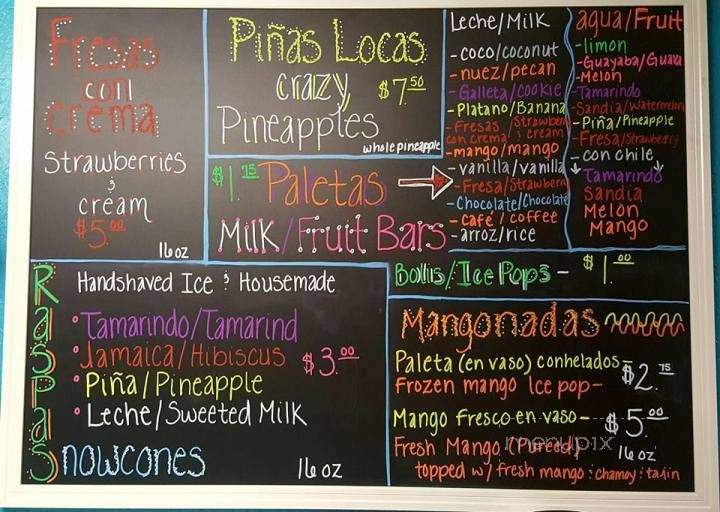 Fresas
con
crema
Strawberries
&
cream
$5.00
16 oz
Piñas Locas
crazy
$7.50
Pineapples
whole pineapple
$1.75 Paletas
Milk/Fruit Bars
Leche/Milk
-coco/coconut
-nuez/pecan
-Galleta/cookie
-Platano/Banana
-Fresas con crema/Strawberry & cream
-mango/mango
-vanilla/vanilla
-Fresa/Strawberry
-Chocolate/Chocolate
-café/coffee
-arroz/rice
agua/Fruit
-limon
-Guayaba/Guava
-Melon
-Tamarindo
-Sandia/Watermelon
-Piña/Pineapple
-Fresa/Strawberry
-con chile
Tamarindo
Sandia
Melon
Mango
Raspas
Handshaved Ice & Housemade
•Tamarindo/Tamarind
•Jamaica/Hibiscus
$3.00
•Piña/Pineapple
•Leche/Sweeted Milk
Snowcones
16 oz
Bolis/Ice Pops - $1.00
Mangonadas
Paleta (en vaso) conhelados-
$2.75
Frozen mango Ice pop-
Mango fresco en vaso- $5.00
Fresh Mango (Pureed) 16 oz
topped w/ fresh mango & chamoy & tajin
menupix